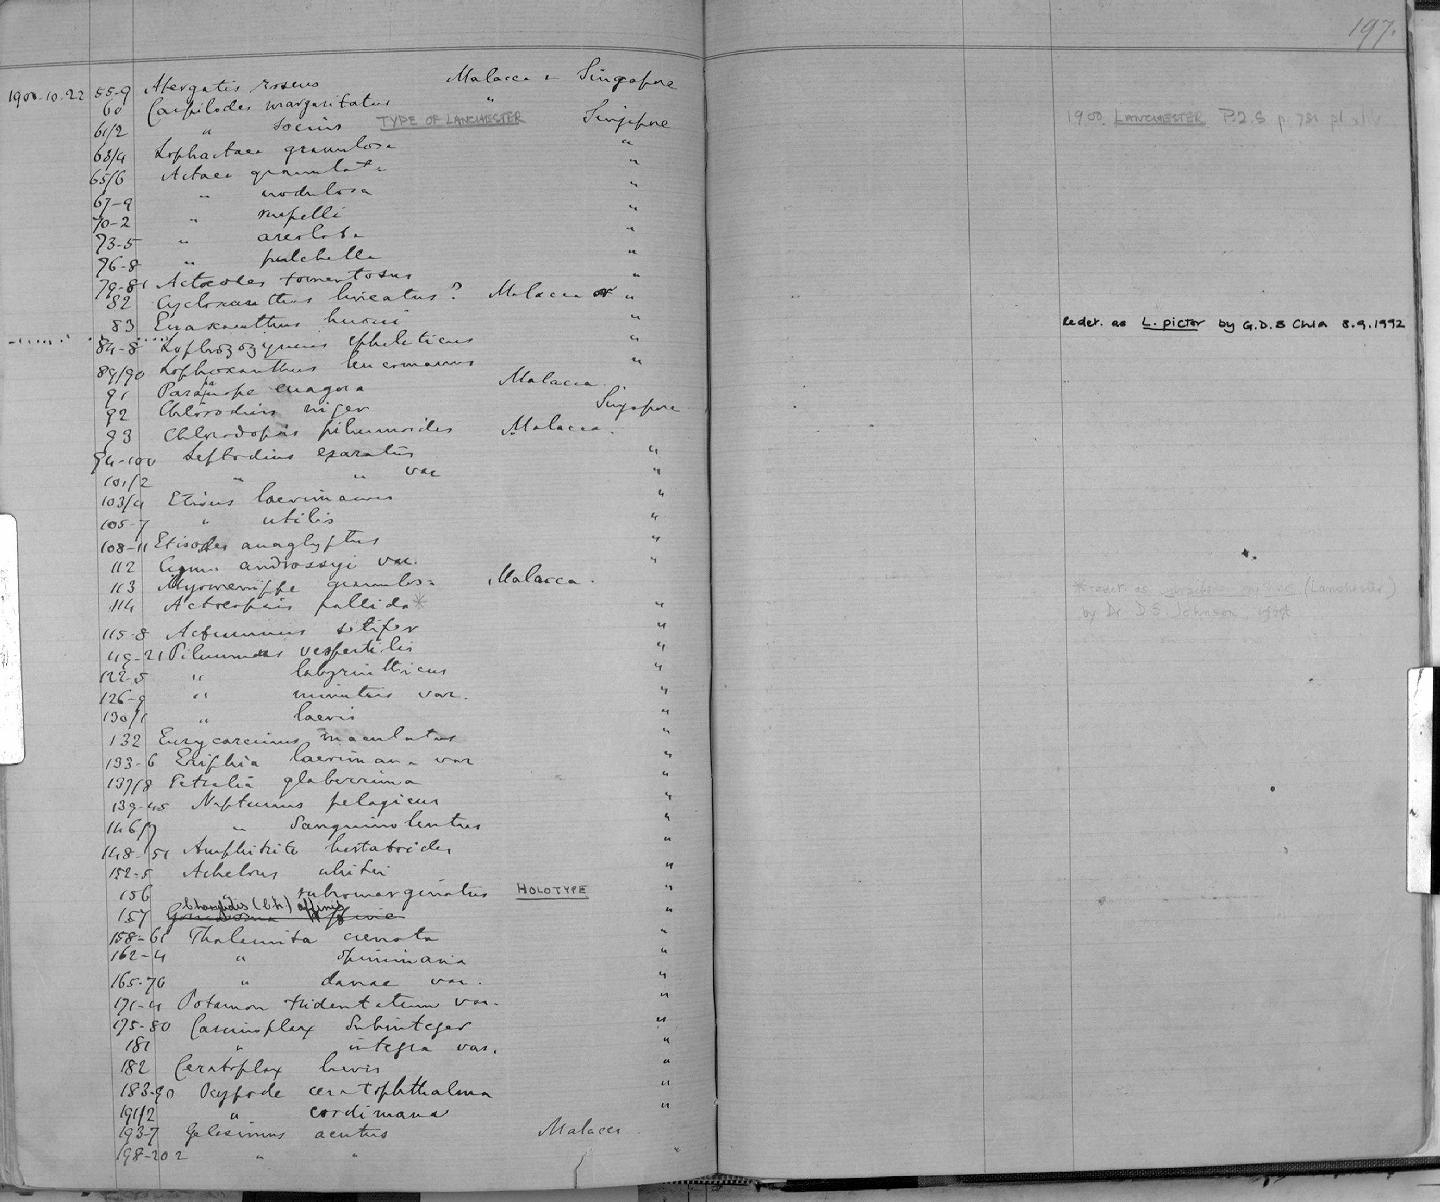 197.
1900.10.22 55-9 Atergatis roseus Malacca & Singapore
60 Carpilodes margaritatus "
61/2 " socius TYPE OF LANCHESTER Singapore 1900. LANCHESTER P.Z.S p. 781 pl
63/4 Lophactaea granulosa "
65/6 Actaea granulata "
67-9 " nodulosa "
70-2 " rupelli "
73-5 " areolata "
76-8 " pulchella "
79-81 Actaeodes tomentosus "
82 Cycloxanthus lineatus? Malacca or "
83 Euxanthus huonii " Redet. as L. pictor by G.D.B Chia 8.9.1992
84-8 Lophozozymus epheliticus "
89/90 Lophoxanthus leucomanus "
91 Parapanope euagora Malacca.
92 Chlorodius niger Singapore
93 Chlorodopsis pilumnoides Malacca.
94-100 Leptodius exaratus "
101/2 " " var "
103/4 Etisus laevimanus "
105-7 " utilis "
108-11 Etisodes anaglyptus "
112 Cymo andreossyi var. "
113 Myomenippe granulosa Malacca.
114 Actaeopsis pallida* " *redet. as (Lanchester)
by Dr D.S. Johnson,
115-8 Actumnus setifer "
119-21 Pilumnus vespertilis "
122-5 " labyrinthicus "
126-9 " minutus var. "
130/1 " laevis "
132 Eurycarcinus maculatus "
133-6 Eriphia laevimana var "
137/8 Petralia glaberrima "
139-45 Neptunus pelagicus "
146/7 " sanguinolentus "
148-51 Amphitrite hastatoides "
152-5 Achelous whitei "
156 " submarginatus HOLOTYPE "
Charybdis (Ch.) affinis
157 Goniosoma affine "
158-61 Thalamita crenata "
162-4 " spinimana "
165-70 " danae var. "
171-4 Potamon tridentatum var. "
175-80 Carcinoplax subinteger "
181 " integra var. "
182 Ceratoplax laevis "
183-90 Ocypode ceratophthalma "
191/2 " cordimana "
193-7 Gelasimus acutus Malacca
198-202 " " "